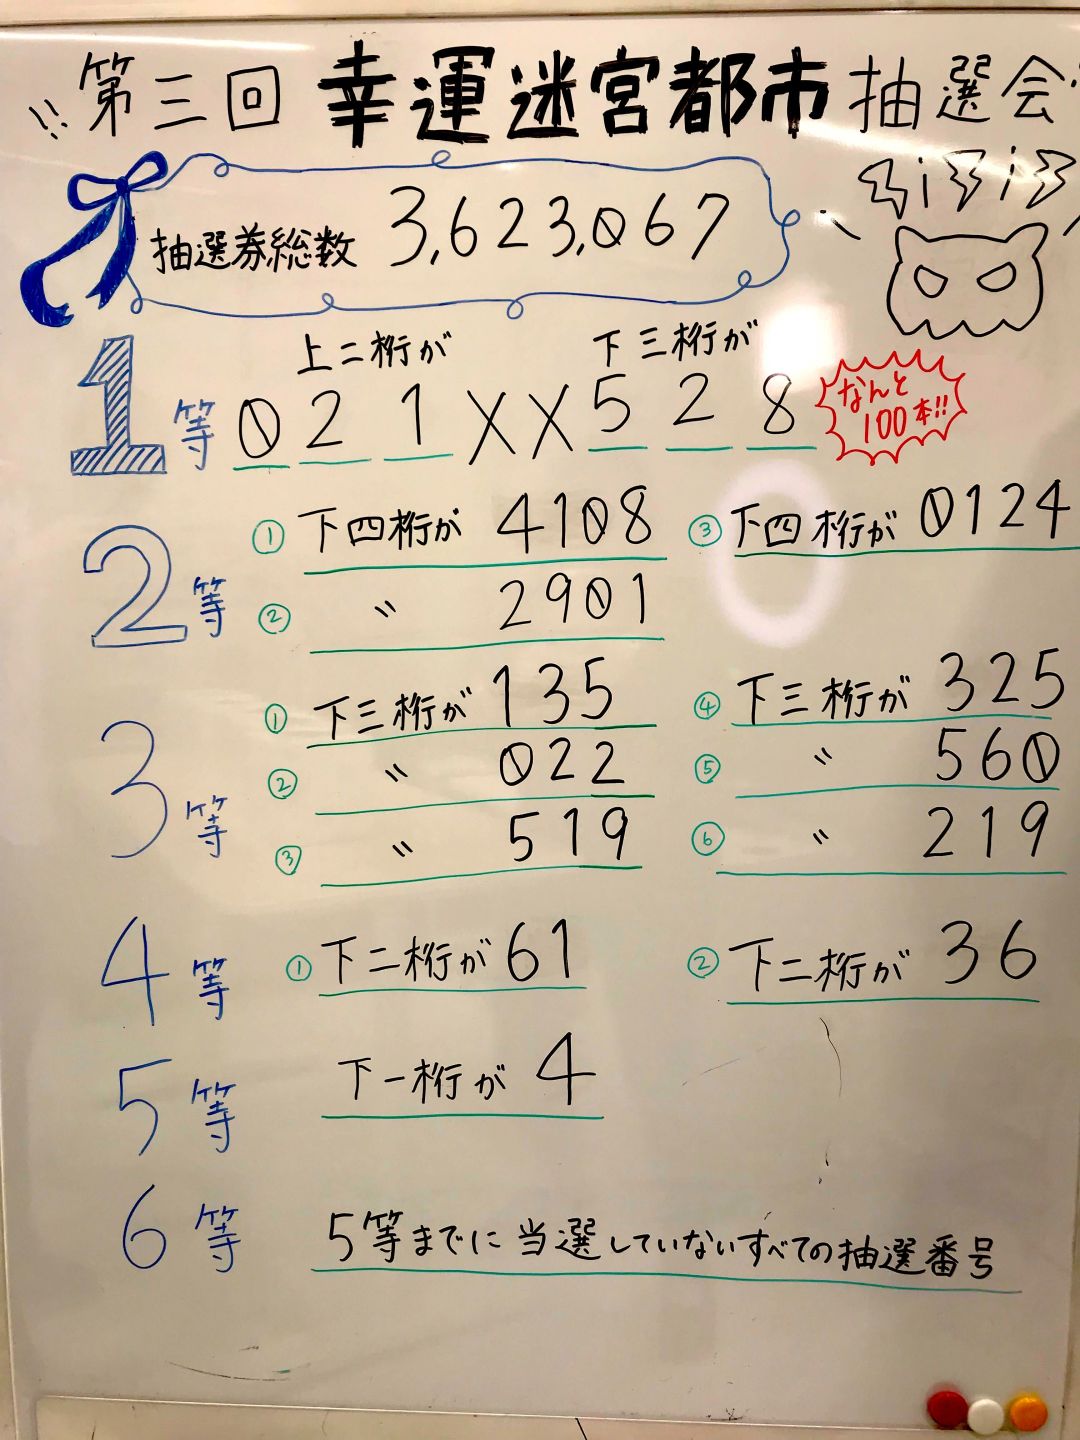 第三回 幸運迷宮都市 抽選会
抽選券総数 3,623,067
上二桁が 下三桁が
1等 021XX528 なんと
100本!!
2等 ① 下四桁が 4108 ③ 下四桁が 0124
② 〃 2901
3等 ① 下三桁が 135 ④ 下三桁が 325
② 〃 022 ⑤ 〃 560
③ 〃 519 ⑥ 〃 219
4等 ① 下二桁が 61 ② 下二桁が 36
5等 下一桁が 4
6等 5等までに当選していないすべての抽選番号